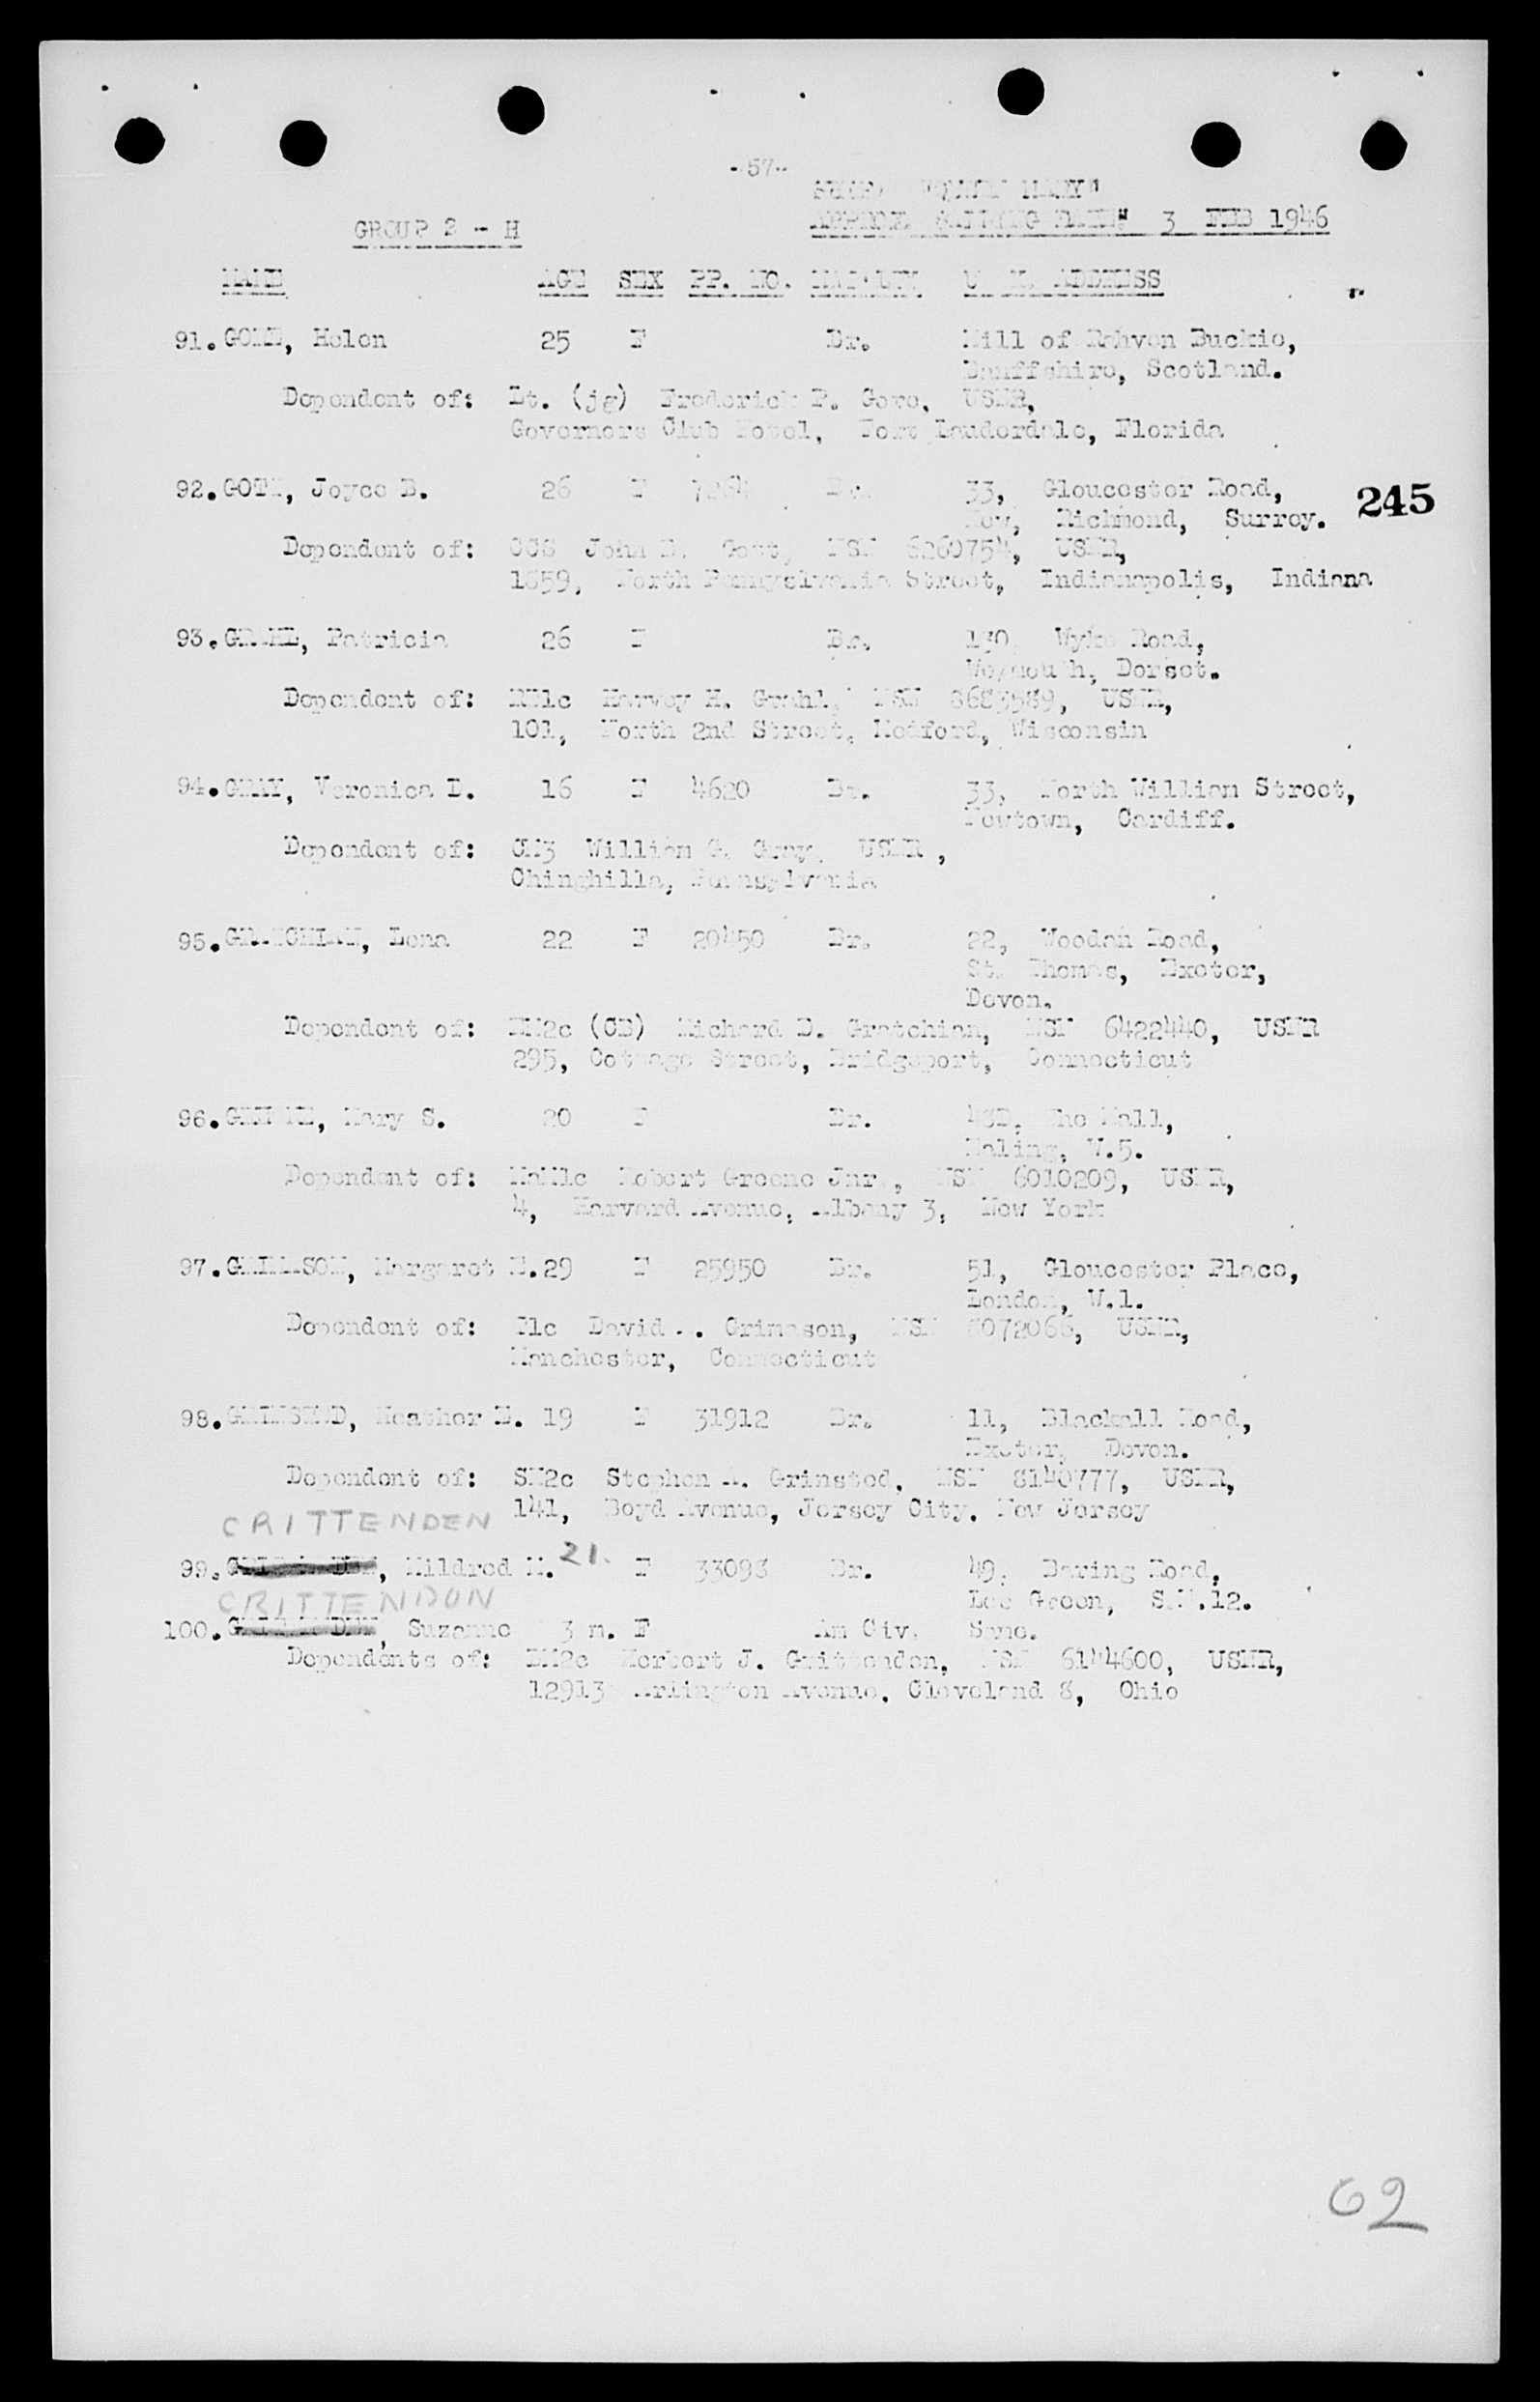 -57-
MARY"
GROUP 2 - H 3 FEB 1946
NAME AGE SEX PP. NO. U. K. ADDRESS
91. GORE, Helen 25 F Br. Mill of Buckie,
Banffshire, Scotland.
Dependent of: Lt. (jg) Frederick P. Gore, USNR,
Governors Club Hotel, Fort Lauderdale, Florida
92. Joyce B. 26 F Br. 33, Gloucester Road,
245
Kew, Richmond, Surrey.
Dependent of: John NSN 6260754, USNR,
1859, North Pennyslvania Street, Indianapolis, Indiana
93. GRAHL, Patricia 26 F Br. 130, Wyke Road,
Weymouth, Dorset.
Dependent of: Harvey H. Grahl, NSN USNR,
101, North 2nd Street, Medford, Wisconsin
94. GRAY, Veronica D. 16 F 4620 Br. 33, North William Street,
Newtown, Cardiff.
Dependent of: William G. Gray, USNR,
Chinghilla, Pennsylvania
95. Lena 22 F 20450 Br. 22, Woodah Road,
St. Thomas, Exeter,
Devon.
Dependent of: (CB) Richard D. Gratchian, NSN 6422440, USNR
295, Cottage Street, Bridgeport, Connecticut
96. Mary S. 20 F Br. 48D, The Mall,
Ealing, W.5.
Dependent of: Robert Greene Jnr., NSN 6010209, USNR,
4, Harvard Avenue, Albany 3, New York
97. GRIMASON, Margaret 29 F 25950 Br. 51, Gloucester Place,
London, W.1.
Dependent of: F1c David A. Grimason, NSN 8072068, USNR,
Manchester, Connecticut
98. Heather E. 19 F 31912 Br. 11, Blackall Road,
Exeter, Devon.
Dependent of: SM2c Stephen A. Grinsted, NSN 8140777, USNR,
CRITTENDEN 141, Boyd Avenue, Jersey City, New Jersey
99. Mildred M. 21. F 33093 Br. 49, Baring Road,
CRITTENDON Lee Green, S.E.12.
100. Suzanne 3 m. F Am Civ. Same.
Dependents of: Herbert J. Grittenden, NSN 6144600, USNR,
12913 Arlington Avenue, Cleveland 8, Ohio
62